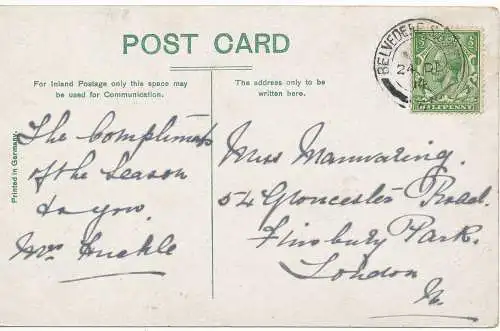 POST CARD
For Inland Postage only this space may
be used for Communication.
The address only to be
written here.
Printed in Germany.
The Compliments
of the Season
to you.
Mrs Huckle
Miss Mannwaring.
54 Gloucester Road.
Finsbury Park.
London
N.
BELVEDERE
24 DE
HALFPENNY